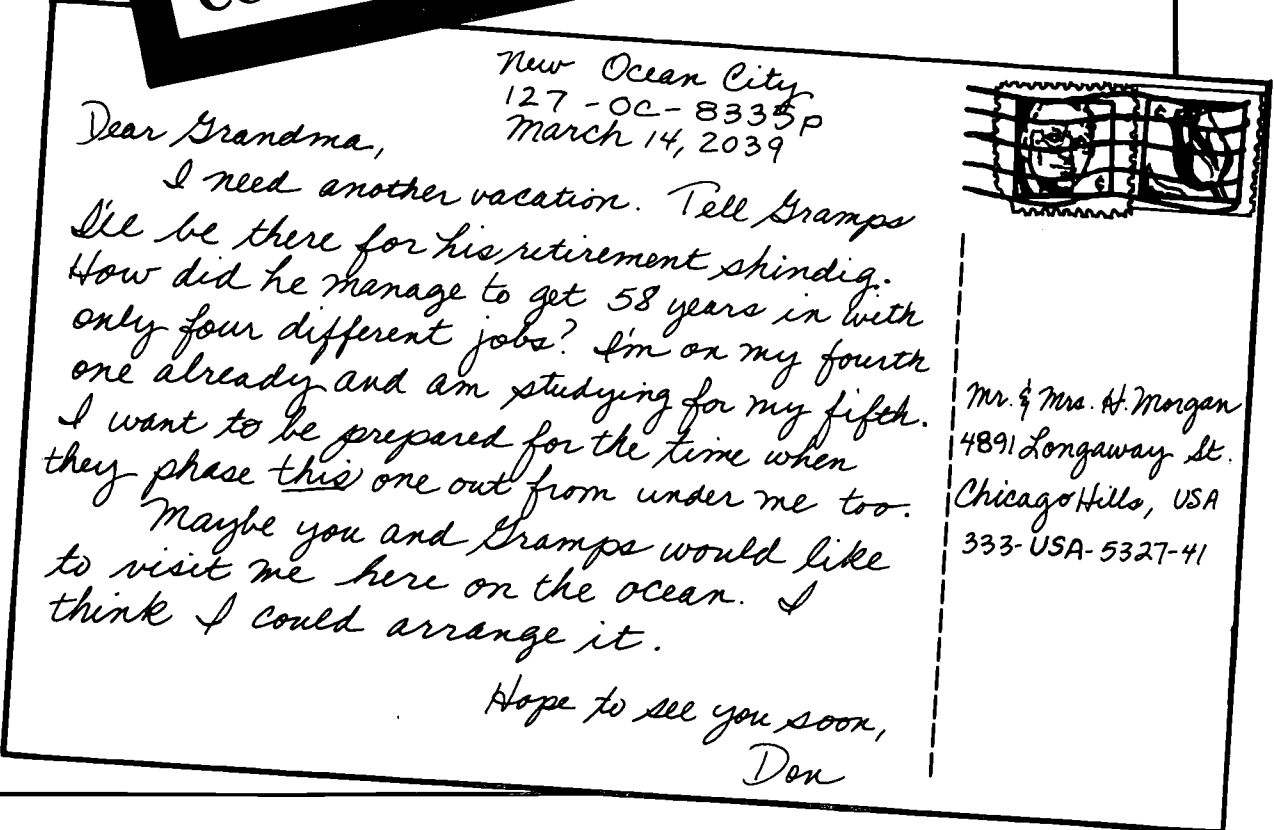 New Ocean City
127-OC-8335p
March 14, 2039
Dear Grandma,
I need another vacation. Tell Gramps
I'll be there for his retirement shindig.
How did he manage to get 58 years in with
only four different jobs? I'm on my fourth
one already and am studying for my fifth.
I want to be prepared for the time when
they phase this one out from under me too.
Maybe you and Gramps would like
to visit me here on the ocean. I
think I could arrange it.
Hope to see you soon,
Don
Mr. & Mrs. H. Morgan
4891 Longaway St.
Chicago Hills, USA
333-USA-5327-41